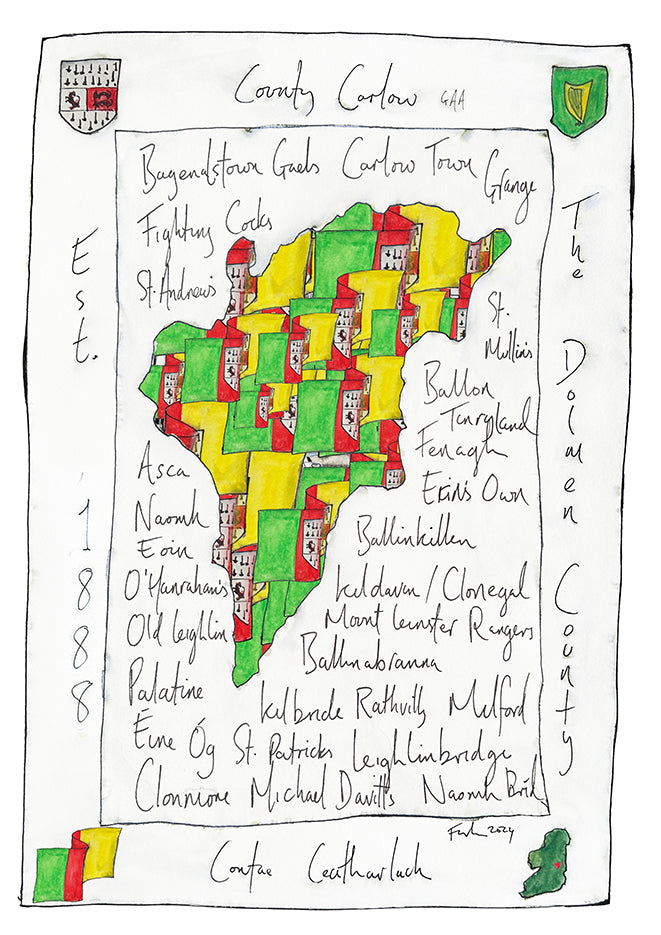 County Carlow GAA
Est. 1888
The Dolmen County
Bagenalstown Gaels Carlow Town Grange
Fighting Cocks
St. Andrew's
St. Mullin's
Ballon
Tinryland
Fenagh
Erin's Own
Asca
Naomh Eoin
Ballinkillen
O'Hanrahan's
Kildavin / Clonegal
Old Leighlin
Mount Leinster Rangers
Ballinabranna
Palatine
Kilbride Rathvilly Milford
Éire Óg St. Patricks Leighlinbridge
Clonmore Michael Davitt's Naomh Bríd
2024
Contae Ceatharlach